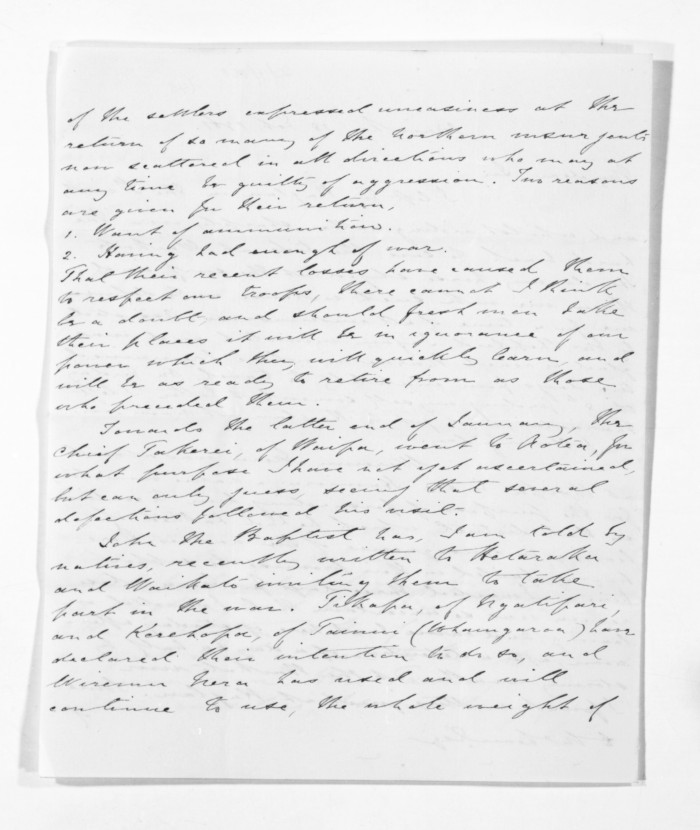 of the settlers expressed uneasiness at the
return of so many of the Northern insurgents
now scattered in all directions who may at
any time be guilty of aggression. Two reasons
are given for their return,
1. Want of ammunition.
2. Having had enough of war.
That their recent losses have caused them
to respect our troops, there cannot I think
be a doubt and should fresh men take
their places it will be in ignorance of our
power which they will quickly learn, and
will be as ready to retire from as those
who preceded them.
Towards the latter end of January, the
Chief Takerei, of Waipa, went to Aotea, for
what purpose I have not yet ascertained,
but can only guess, seeing that several
defections followed his visit.
John the Baptist has, I am told by
natives, recently written to Hetaraka
and Waikato inviting them to take
part in the war. Tikapa, of Ngatipari,
and Kerehopa, of Tainui (Whaingaroa) have
declared their intention to do so, and
Wiremu Nera has used and will
continue to use, the whole weight of